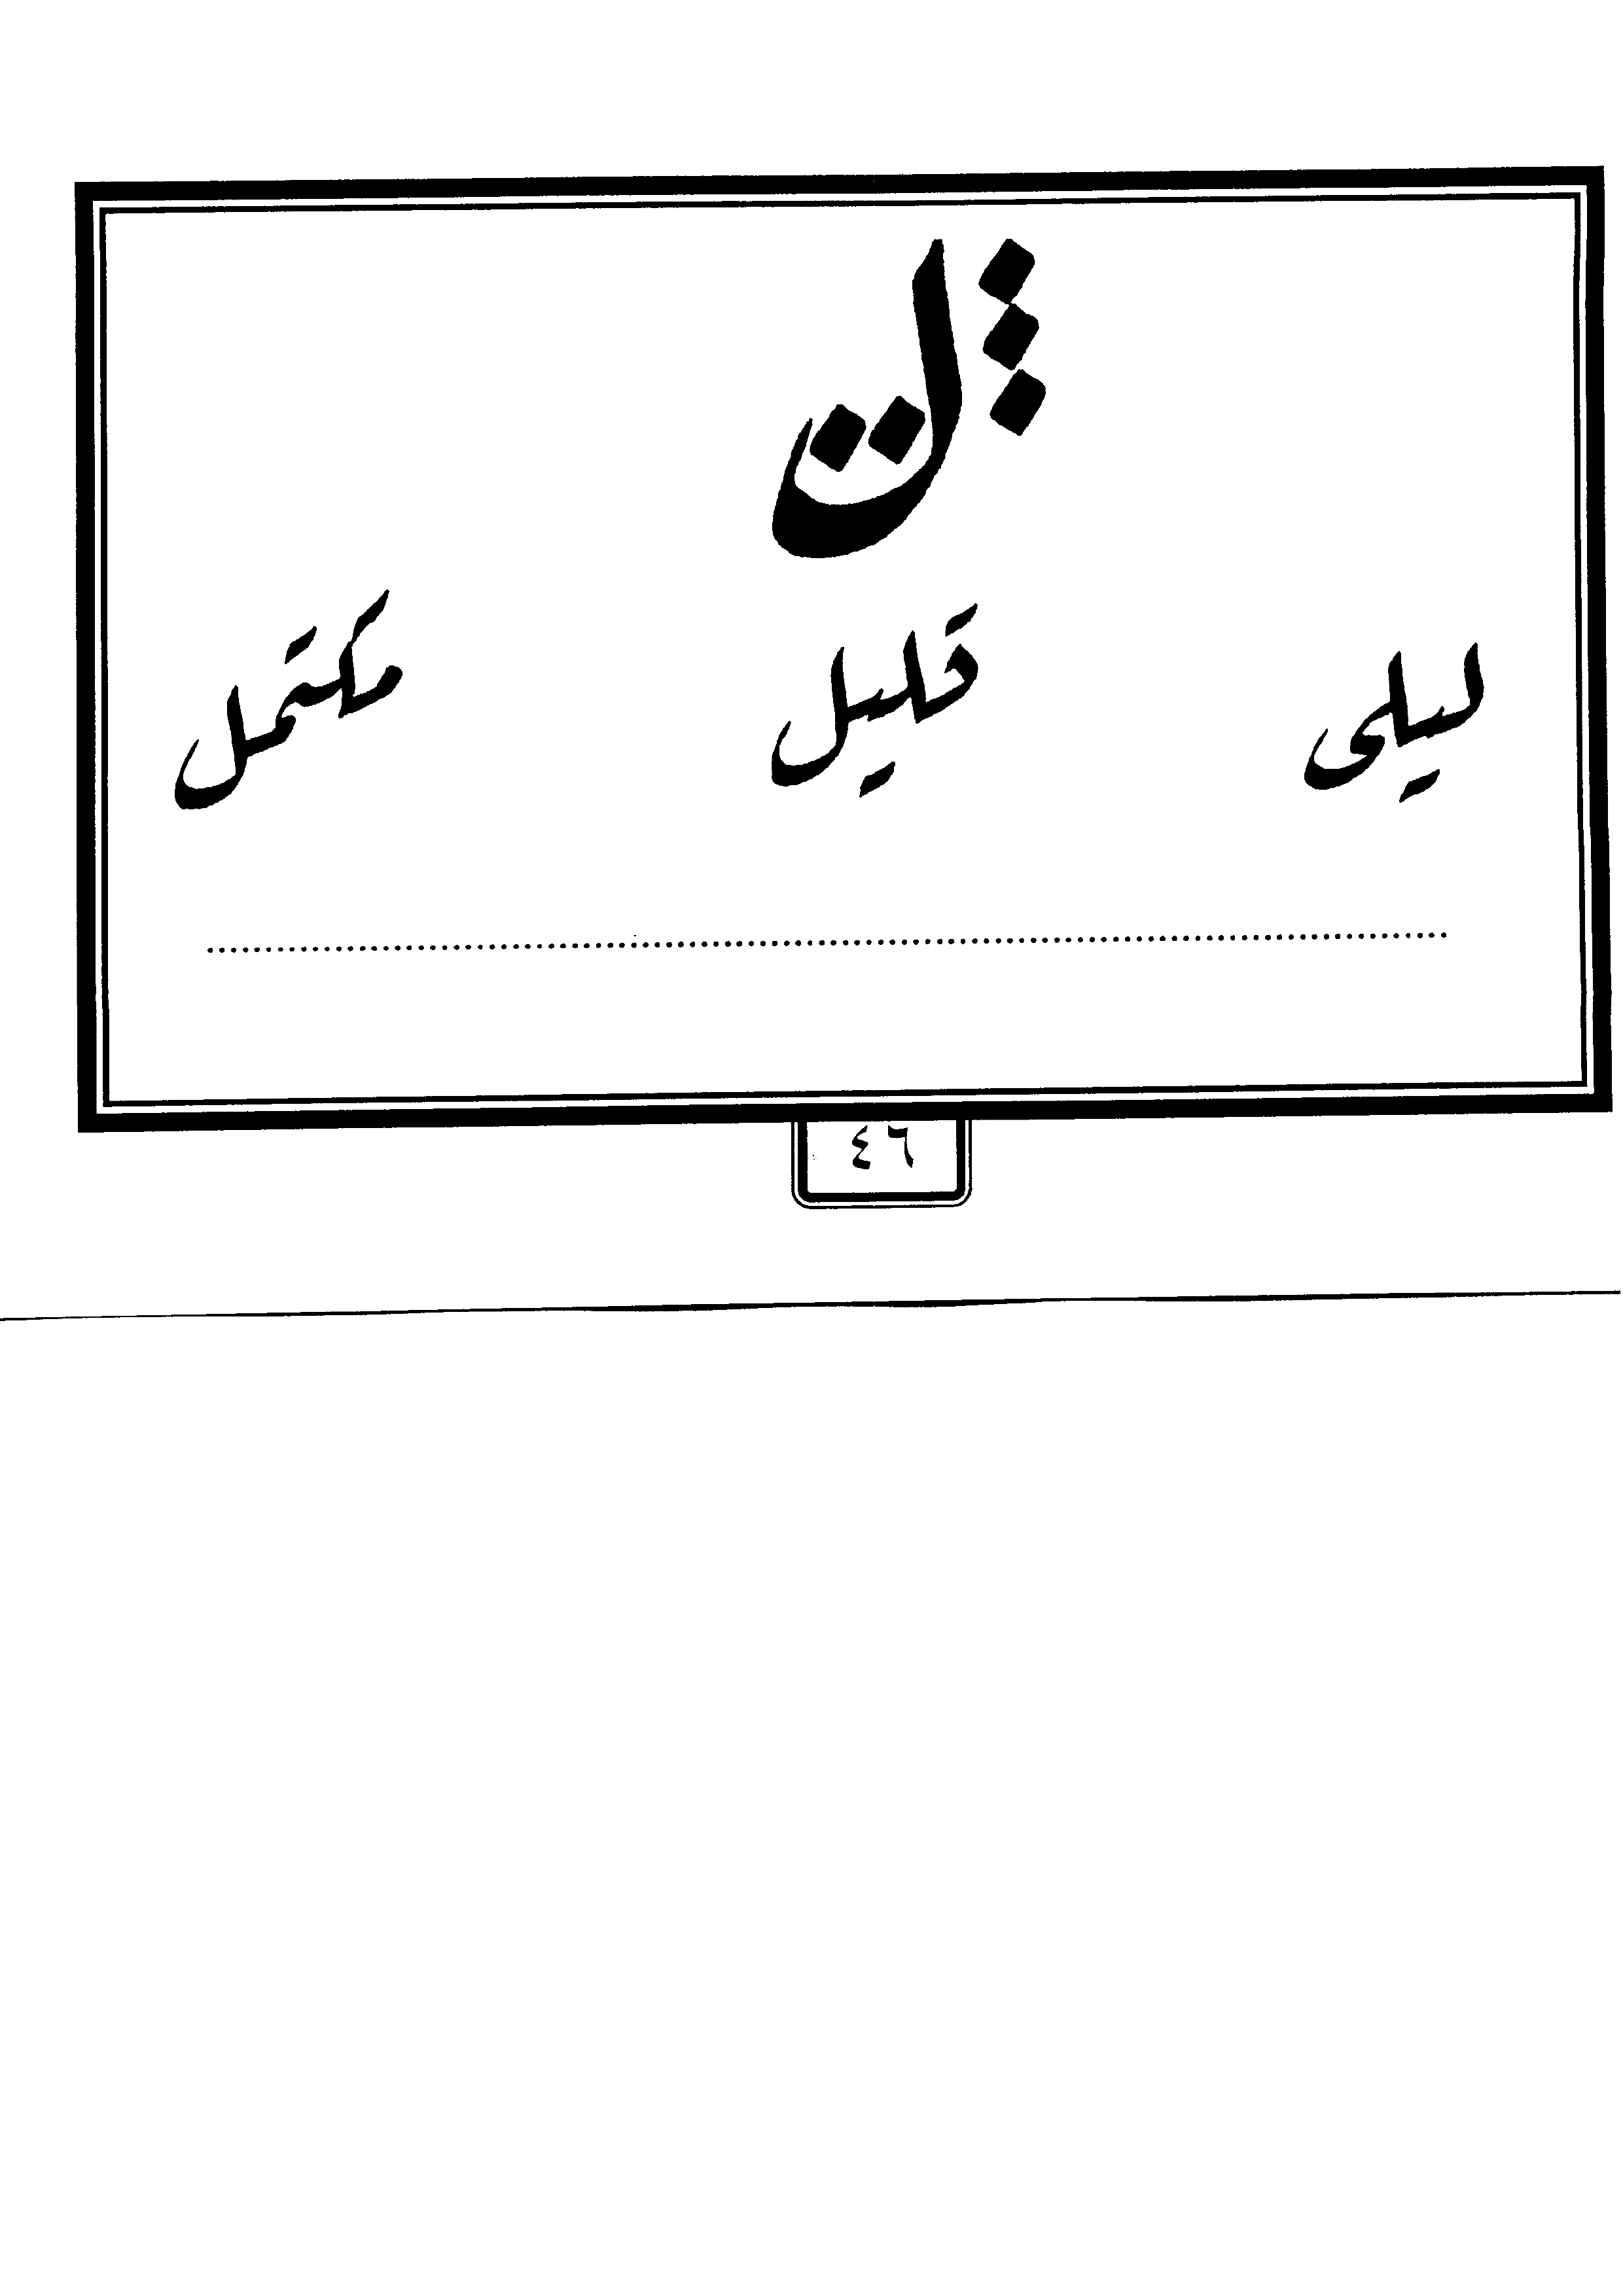 ل
ليلى قليل مكتمل
٤٦